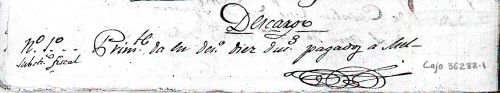 Descargo
Nº 1º Prim.te da en des.º diez du.s pagados á Mel-
Substo. fiscal
Cajo 36288-1